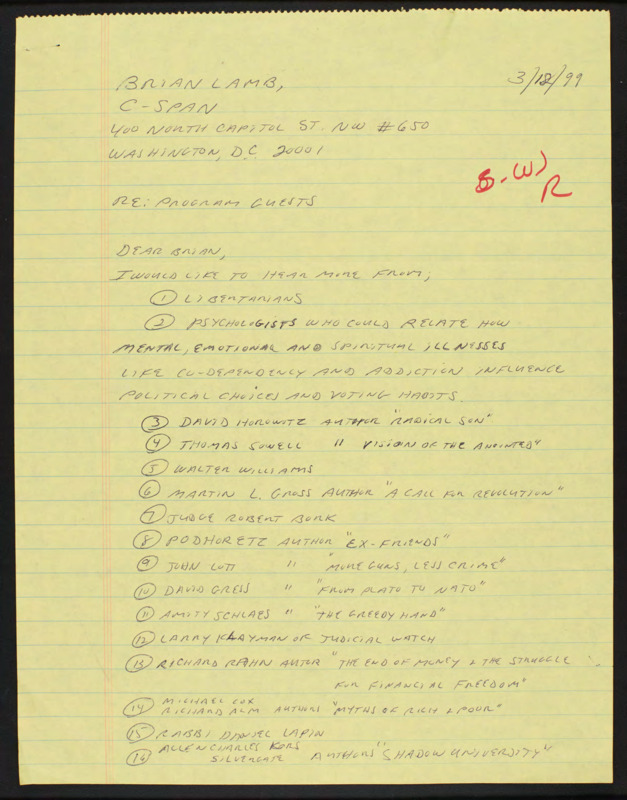 3/18/99
BRIAN LAMB,
C-SPAN
400 NORTH CAPITOL ST. NW #650
WASHINGTON, D.C. 20001
RE: PROGRAM GUESTS
DEAR BRIAN,
I WOULD LIKE TO HEAR MORE FROM;
1 LIBERTARIANS
2 PSYCHOLOGISTS WHO COULD RELATE HOW
MENTAL, EMOTIONAL AND SPIRITUAL ILLNESSES
LIKE CO-DEPENDENCY AND ADDICTION INFLUENCE
POLITICAL CHOICES AND VOTING HABITS.
3 DAVID HOROWITZ AUTHOR "RADICAL SON"
4 THOMAS SOWELL " VISION OF THE ANOINTED"
5 WALTER WILLIAMS
6 MARTIN L. GROSS AUTHOR "A CALL FOR REVOLUTION"
7 JUDGE ROBERT BORK
8 PODHORETZ AUTHOR "EX-FRIENDS"
9 JOHN LOTT " "MORE GUNS, LESS CRIME"
10 DAVID GRESS " "FROM PLATO TO NATO"
11 AMITY SCHLAES " "THE GREEDY HAND"
12 LARRY KLAYMAN OF JUDICIAL WATCH
13 RICHARD RAHN AUTOR "THE END OF MONEY & THE STRUGGLE
FOR FINANCIAL FREEDOM"
14 MICHAEL COX
RICHARD ALM AUTHORS "MYTHS OF RICH & POOR"
15 RABBI DANIEL LAPIN
16 ALLEN CHARLES KORS
SILVERGATE AUTHORS "SHADOW UNIVERSITY"